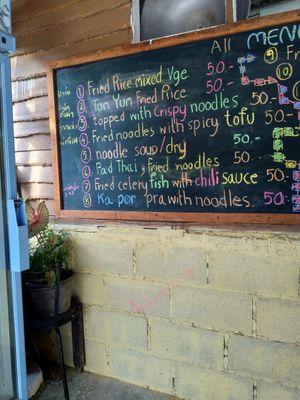 All MENU
① Fried Rice mixed Vge 50.-
② Ton Yun Fried Rice 50.-
③ topped with Crispy noodles 50.-
④ Fried noodles with spicy tofu 50.-
⑤ noodle soup/dry 50.-
⑥ Pad Thai, fried noodles 50.-
⑦ Fried celery fish with chili sauce 50.
⑧ Ka por pra with noodles. 50.-
⑨ Fr
⑩